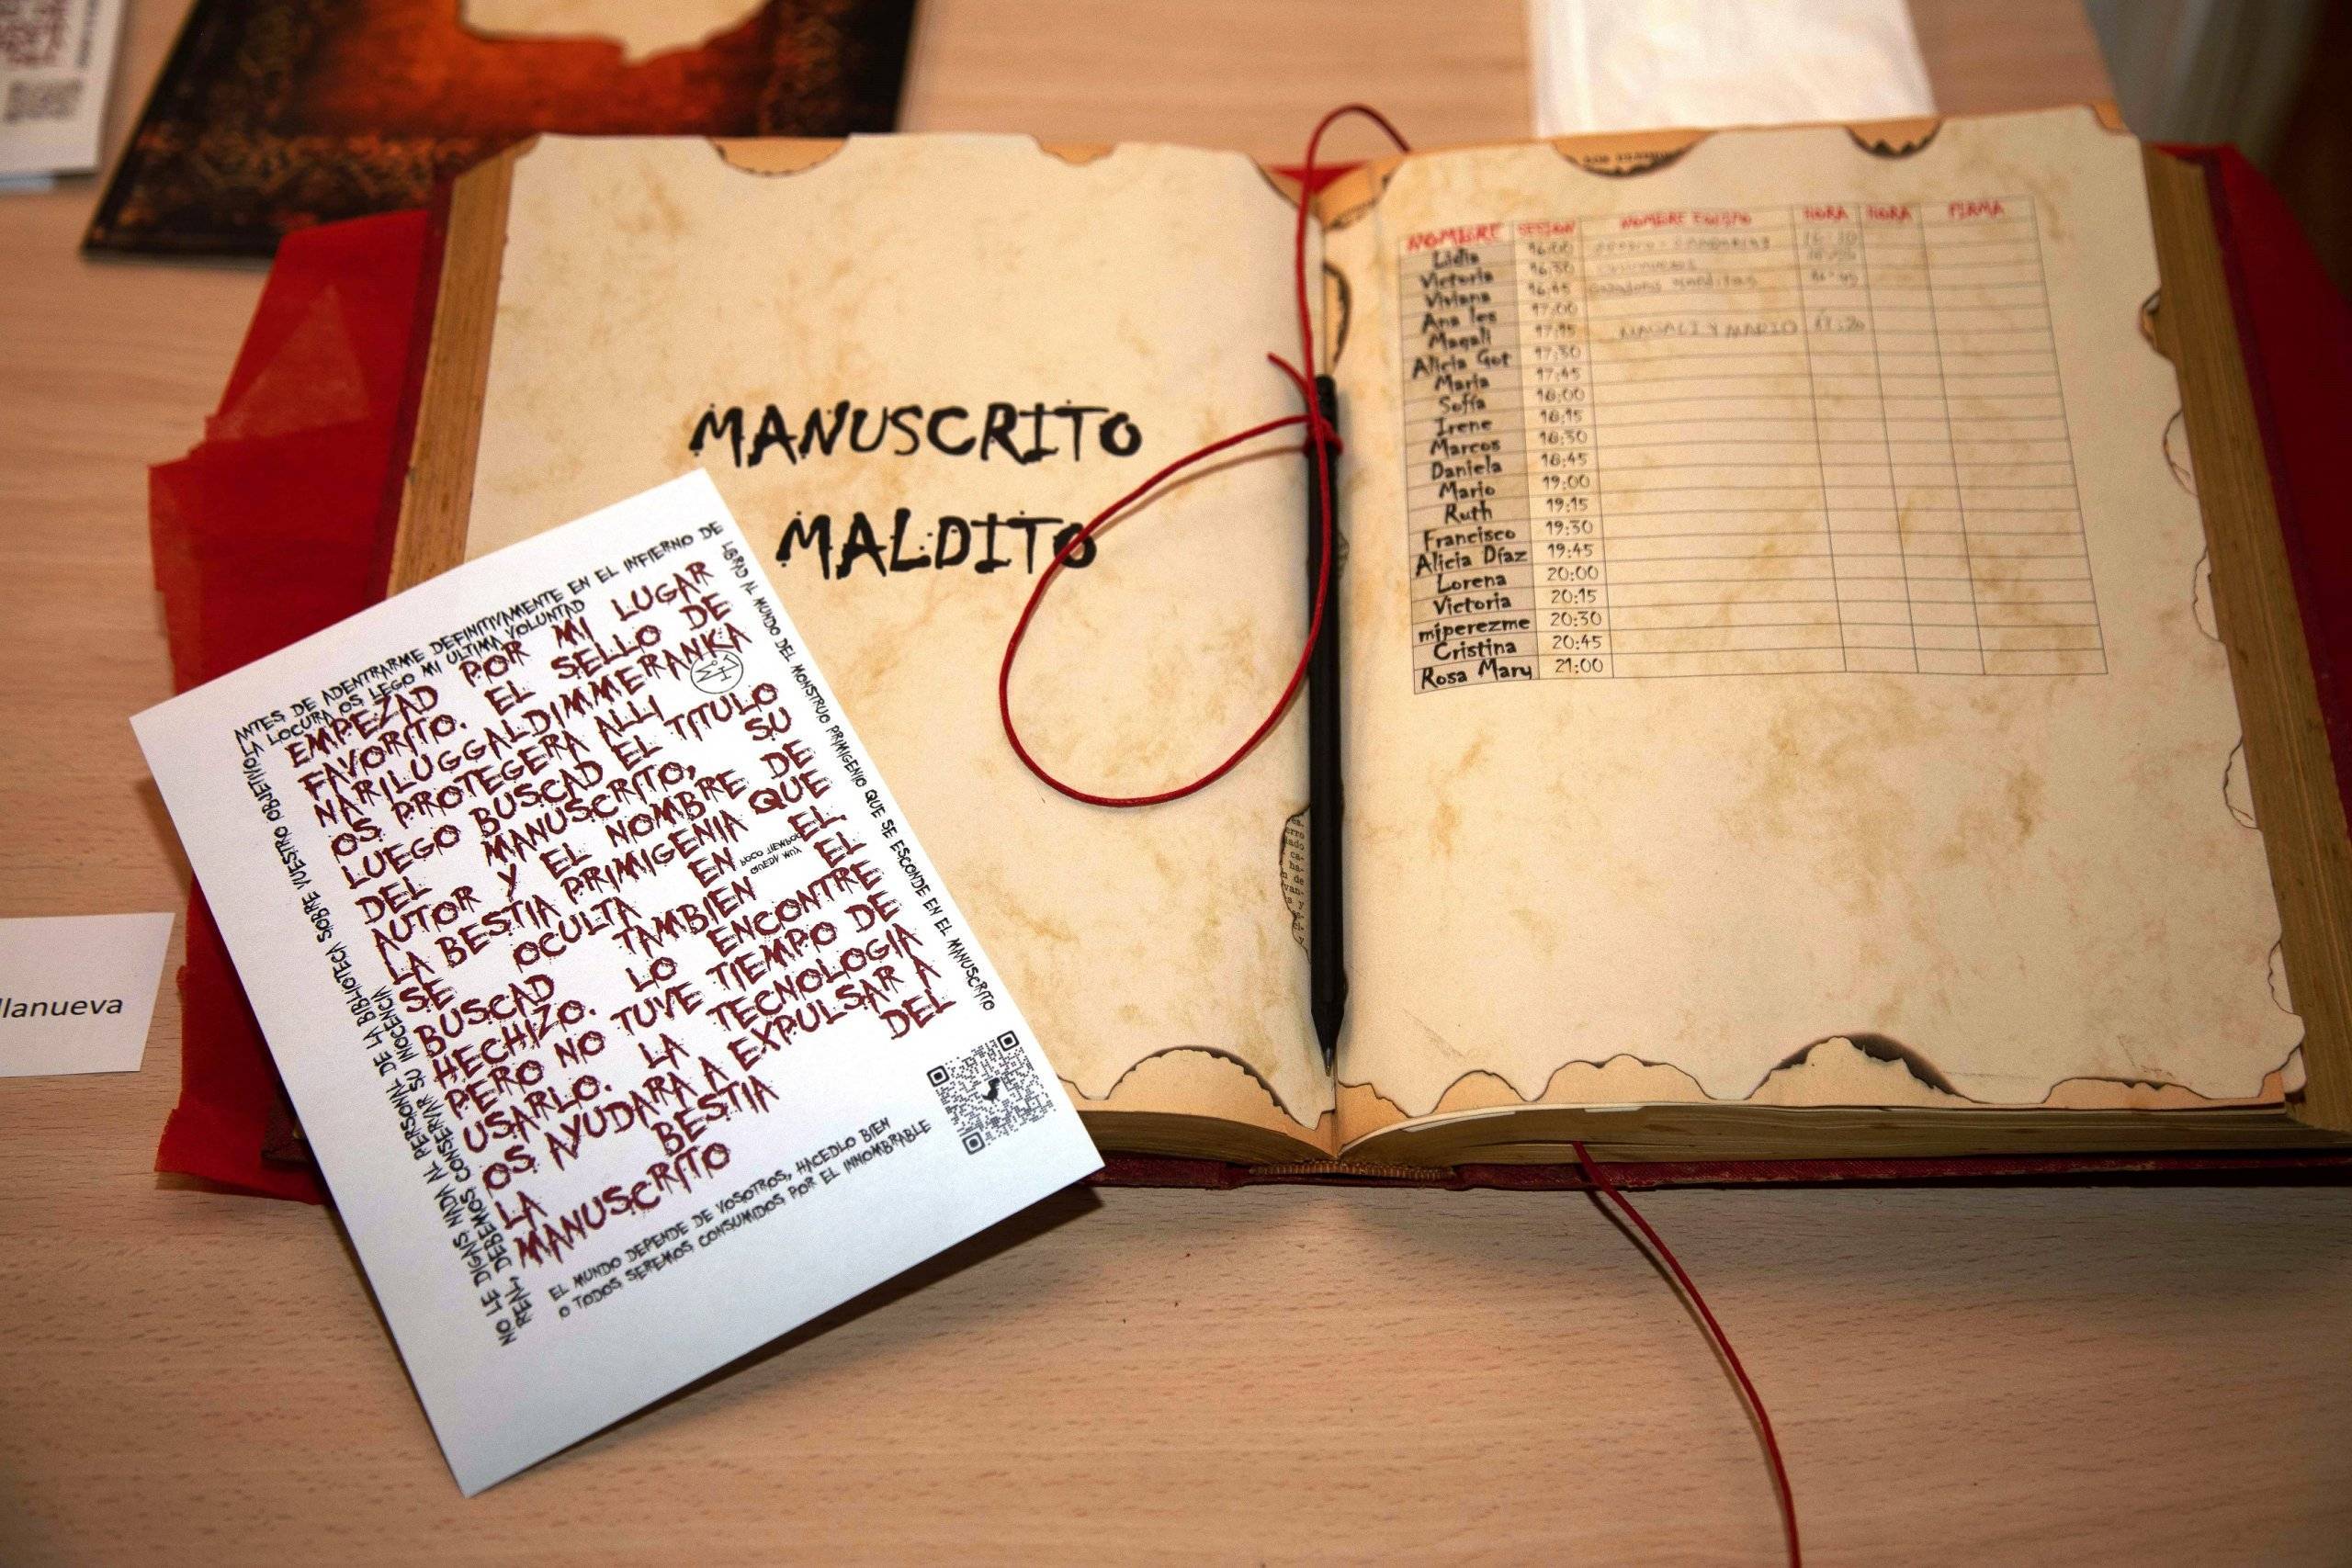 MANUSCRITO
MALDITO
ANTES DE ADENTRARME DEFINITIVAMENTE EN EL INFIERNO DE
LA LOCURA OS LEGO MI ULTIMA VOLUNTAD
EMPEZAD POR MI LUGAR
FAVORITO. EL SELLO DE
NARILUGGALDIMMERANKA
OS PROTEGERA ALLI
LUEGO BUSCAD EL TITULO
DEL MANUSCRITO, SU
AUTOR Y EL NOMBRE DE
LA BESTIA PRIMIGENIA QUE
SE OCULTA EN EL
BUSCAD TAMBIEN EL
HECHIZO. LO ENCONTRE
PERO NO TUVE TIEMPO DE
USARLO. LA TECNOLOGIA
OS AYUDARA A EXPULSAR A
LA BESTIA DEL
MANUSCRITO
QUEDA MUY
POCO TIEMPO
LIBRAD AL MUNDO DEL MONSTRUO PRIMIGENIO QUE SE ESCONDE EN EL MANUSCRITO
EL MUNDO DEPENDE DE VOSOTROS, HACEDLO BIEN
O TODOS SEREMOS CONSUMIDOS POR EL INNOMBRABLE
NO LE DIGAIS NADA AL PERSONAL DE LA BIBLIOTECA SOBRE VUESTRO OBJETIVO
REAL, DEBEMOS CONSERVAR SU INOCENCIA
llanueva
NOMBRE SESION NOMBRE EQUIPO HORA HORA FIRMA
Lidia 16:00
Victoria 16:30
Viviana 16:45 malditas 16:45
Ana Ies 17:00
Magali 17:15 MAGALI Y MARIO 17:20
Alicia Got 17:30
María 17:45
Soffa 18:00
Irene 18:15
Marcos 18:30
Daniela 18:45
Mario 19:00
Ruth 19:15
Francisco 19:30
Alicia Díaz 19:45
Lorena 20:00
Victoria 20:15
miperezme 20:30
Cristina 20:45
Rosa Mary 21:00